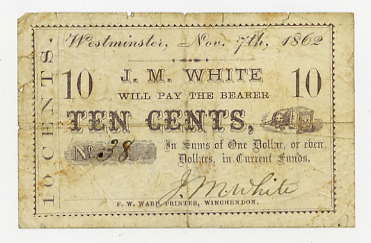 10 CENTS.
Westminster, Nov. 7th, 1862
10 J. M. WHITE 10
WILL PAY THE BEARER
TEN CENTS,
No. 38 In Sums of One Dollar, or even
Dollars, in Current Funds.
J. M. White
F. W. WARD, PRINTER, WINCHENDON.